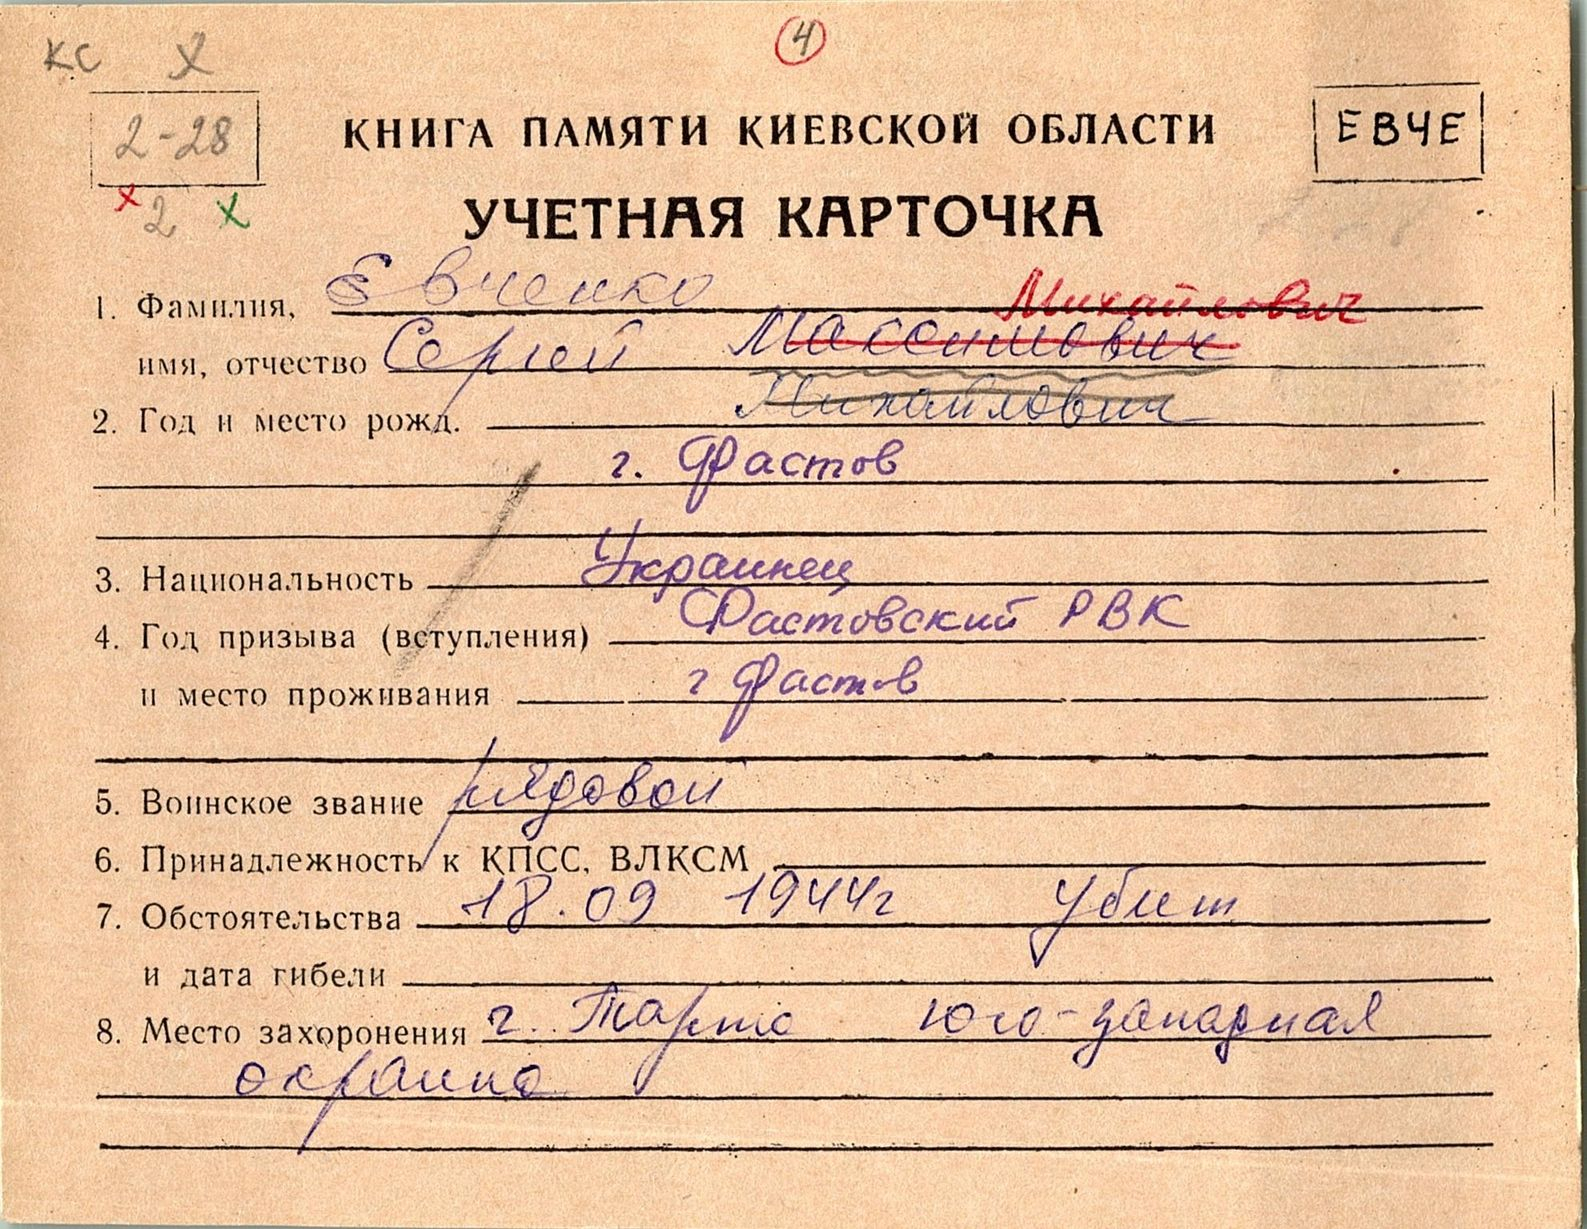 КС Х
4
2-28
КНИГА ПАМЯТИ КИЕВСКОЙ ОБЛАСТИ
ЕВЧЕ
х 2 х
УЧЕТНАЯ КАРТОЧКА
1. Фамилия, Евченко
Михайлович
имя, отчество Сергей Массимович
Михайлович
2. Год и место рожд.
г. Фастов
3. Национальность Украинец
4. Год призыва (вступления) Фастовский РВК
и место проживания г Фастов
5. Воинское звание рядовой
6. Принадлежность к КПСС, ВЛКСМ
7. Обстоятельства 18.09 1944г убит
и дата гибели
8. Место захоронения г. Тарту юго-западная
окраина